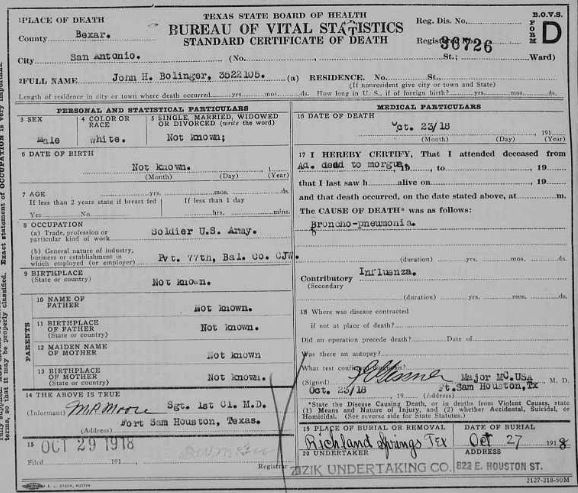 TEXAS STATE BOARD OF HEALTH
BUREAU OF VITAL STATISTICS
STANDARD CERTIFICATE OF DEATH
Reg. Dis. No.
Registered 36726
B.O.V.S.
FORM D
1 PLACE OF DEATH
County Bexar.
City San Antonio. (No. St.; Ward)
2 FULL NAME John H. Bolinger, 3522105. (a) RESIDENCE. No. St.
(If nonresident give city or town and State)
Length of residence in city or town where death occurred yrs. mos. ds. How long in U. S., if of foreign birth? yrs. mos. ds.
PERSONAL AND STATISTICAL PARTICULARS
3 SEX
Male
4 COLOR OR RACE
White.
5 SINGLE, MARRIED, WIDOWED OR DIVORCED (write the word)
Not known;
6 DATE OF BIRTH
Not known.
(Month) (Day) (Year)
7 AGE yrs. mos. ds.
If less than 2 years state if breast fed
Yes No
If less than 1 day
hrs. mins.
8 OCCUPATION
(a) Trade, profession or particular kind of work Soldier U.S. Army.
(b) General nature of industry, business or establishment in which employed (or employer) Pvt. 77th, Bal. Co. CJW.
9 BIRTHPLACE
(State or country) Not known.
PARENTS
10 NAME OF FATHER Not known.
11 BIRTHPLACE OF FATHER (State or country) Not known.
12 MAIDEN NAME OF MOTHER Not known
13 BIRTHPLACE OF MOTHER (State or country) Not known.
14 THE ABOVE IS TRUE
(Informant) M.P. Moore Sgt. 1st Cl. M.D.
Fort Sam Houston, Texas.
(Address)
15 OCT 29 1918
Filed 191
Registrar
MEDICAL PARTICULARS
16 DATE OF DEATH
Oct. 23/18 191
(Month) (Day) (Year)
17 I HEREBY CERTIFY, That I attended deceased from
Ad. dead to morgue, 19 , to , 19
that I last saw h alive on , 19
and that death occurred, on the date stated above, at m.
The CAUSE OF DEATH* was as follows:
Broncho-pneumonia.
(duration) yrs. mos. ds.
Contributory Influenza.
(Secondary)
(duration) yrs. mos. ds.
18 Where was disease contracted
if not at place of death?
Did an operation precede death? Date of
Was there an autopsy?
What test confirmed
(Signed) Major MC.USA M. D.
Oct. 23/18 , 19 (Address) Ft.Sam Houston,Tx
*State the Disease Causing Death, or in deaths from Violent Causes, state (1) Means and Nature of Injury, and (2) whether Accidental, Suicidal, or Homicidal. (See reverse side for State Statutes.)
19 PLACE OF BURIAL OR REMOVAL
Richland Springs Tex
DATE OF BURIAL
Oct 27 1918
20 UNDERTAKER
ZIZIK UNDERTAKING CO.
ADDRESS
822 E. HOUSTON ST.
2127-318-50M